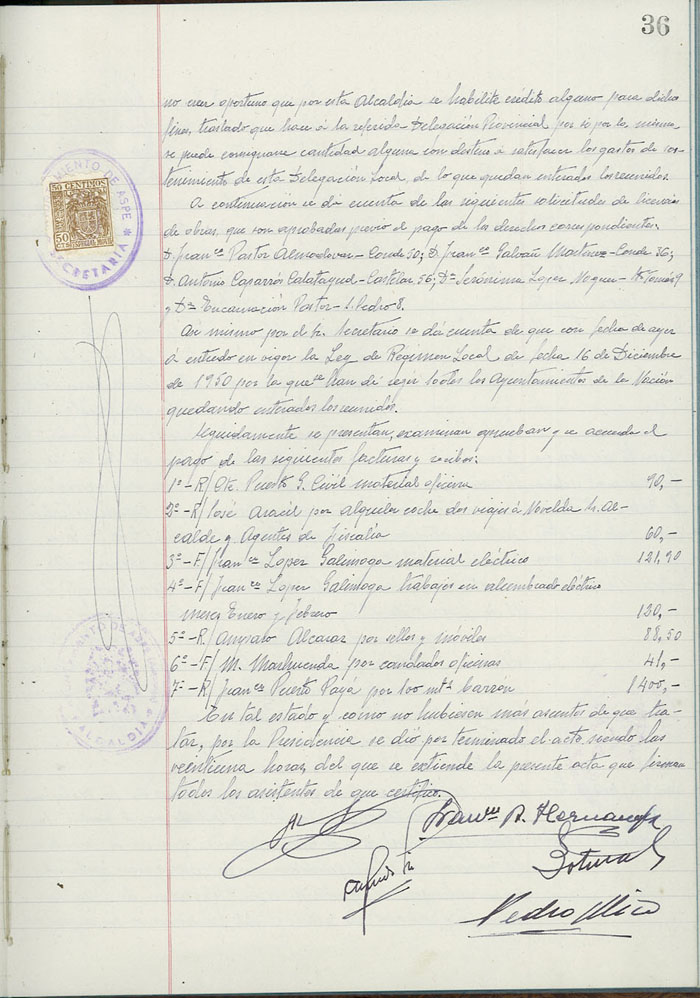 36
no creer oportuno que por esta Alcaldia se habilite credito alguno para dichos
fines, traslado que hace á la referida Delegación Provincial por si por la misma
se puede consignarse cantidad alguna con destino á satisfacer los gastos de sos-
tenimiento de esta Delegación Local, de lo que quedan enterados los reunidos.
A continuación se dá cuenta de las siguientes solicitudes de licencias
de obras, que son aprobadas previo el pago de los derechos correspondientes:
D. Franco Pastor Almodovar - Conde 50; D. Franco Galvañ Martinez - Conde 36;
D. Antonio Caparrós Calatayud - Castelar 56; Da Jerónima Lopez - Sto Tomás 9
y Da Encarnación Pastor - S. Pedro - 8.
Asi mismo por el Sr. Secretario se dá cuenta de que con fecha de ayer
á entrado en vigor la Ley de Régimen Local de fecha 16 de Diciembre
de 1950 por la que se han de regir todos los Ayuntamientos de la Nación
quedando enterados los reunidos.
Seguidamente se presentan, examinan aprueban y se acuerda el
pago de las siguientes facturas y recibos:
1º - R/ Puesto G. Civil material oficina 90,-
2º - R/ José Aracil por alquiler coche dos viajes á Novelda Sr. Al-
calde y Agentes de Fiscalia 60,-
3º - F/ Franco Lopez Galinsoga material eléctrico 121,90
4º - F/ Franco Lopez Galinsoga trabajos en alumbrado eléctrico
meses Enero y febrero 130,-
5º - R/ Amparo Alcaraz por sellos y móviles 88,50
6º - F/ M. Marhuenda por candados oficinas 41,-
7º - R/ Franco Puerto Payá por 100 mts carrón 1400,-
En tal estado y como no hubiesen más asuntos de que tra-
tar, por la Presidencia se dió por terminado el acto siendo las
veintiuna horas, del que se extiende la presente acta que firman
todos los asistentes de que certifico.
Franco A. Hernandez
Pedro Mico
AYUNTAMIENTO DE ASPE
SECRETARIA
50 CENTIMOS
50
ALCALDIA